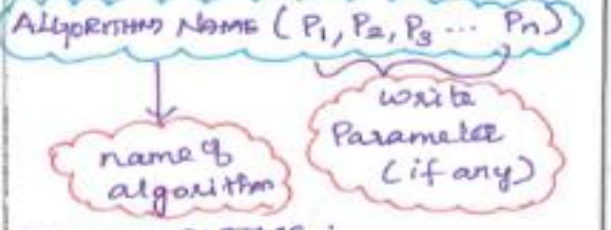 ALGORITHM NAME ( P1, P2, P3 ... Pn)
name of
algorithm
write
Parameter
(if any)